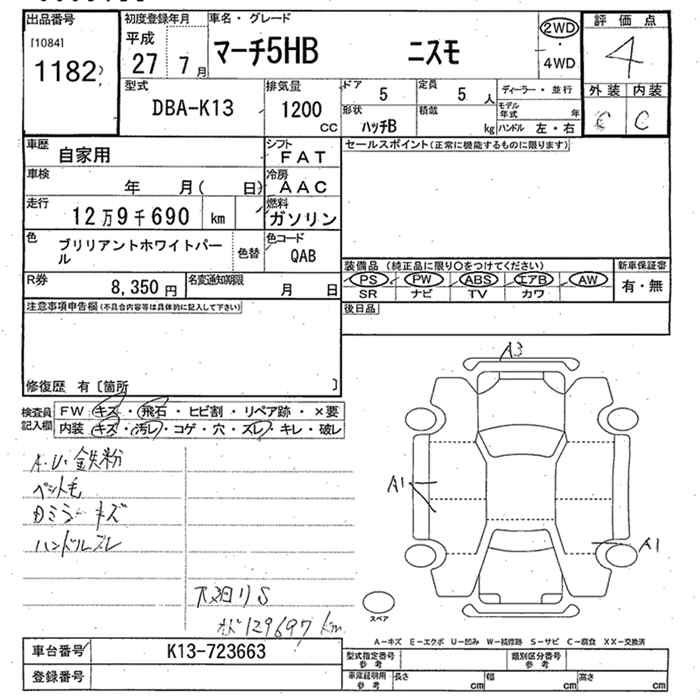 出品番号
[1084]
1182
初度登録年月
平成
27 7月
車名・グレード
マーチ5HB ニスモ
2WD
・
4WD
評価点
4
外装 内装
C C
型式
DBA-K13
排気量
1200
CC
ドア
5
定員
5 人
ディーラー・並行
モデル年式 年
形状
ハッチB
積載
kg
ハンドル 左・右
車歴
自家用
シフト
FAT
セールスポイント(正常に機能するものに限ります)
車検
年 月( 日)
冷房
AAC
走行
12万9千690 km
燃料
ガソリン
色
ブリリアントホワイトパール
色替
色コード
QAB
R券
8,350 円
名変通知期限
月 日
装備品 (純正品に限り○をつけてください)
新車保証書
PS PW ABS エアB AW
SR ナビ TV カワ
有・無
注意事項申告欄(不具合内容等は具体的に記入して下さい)
後日品
修復歴 有〔箇所 〕
検査員記入欄
FW キズ・飛石・ヒビ割・リペア跡・×要
内装 キズ・汚レ・コゲ・穴・スレ・キレ・破レ
A・U・鉄粉
ペット毛
Dミラーキズ
ハンドルスレ
S
129697 km
A3
A1
A1
スペア
A-キズ E-エクボ U-凹み W-補修跡 S-サビ C-腐食 XX-交換済
車台番号
K13-723663
登録番号
型式指定番号
参考
類別区分番号
参考
車庫証明用
参考
長さ cm
幅 cm
高さ cm